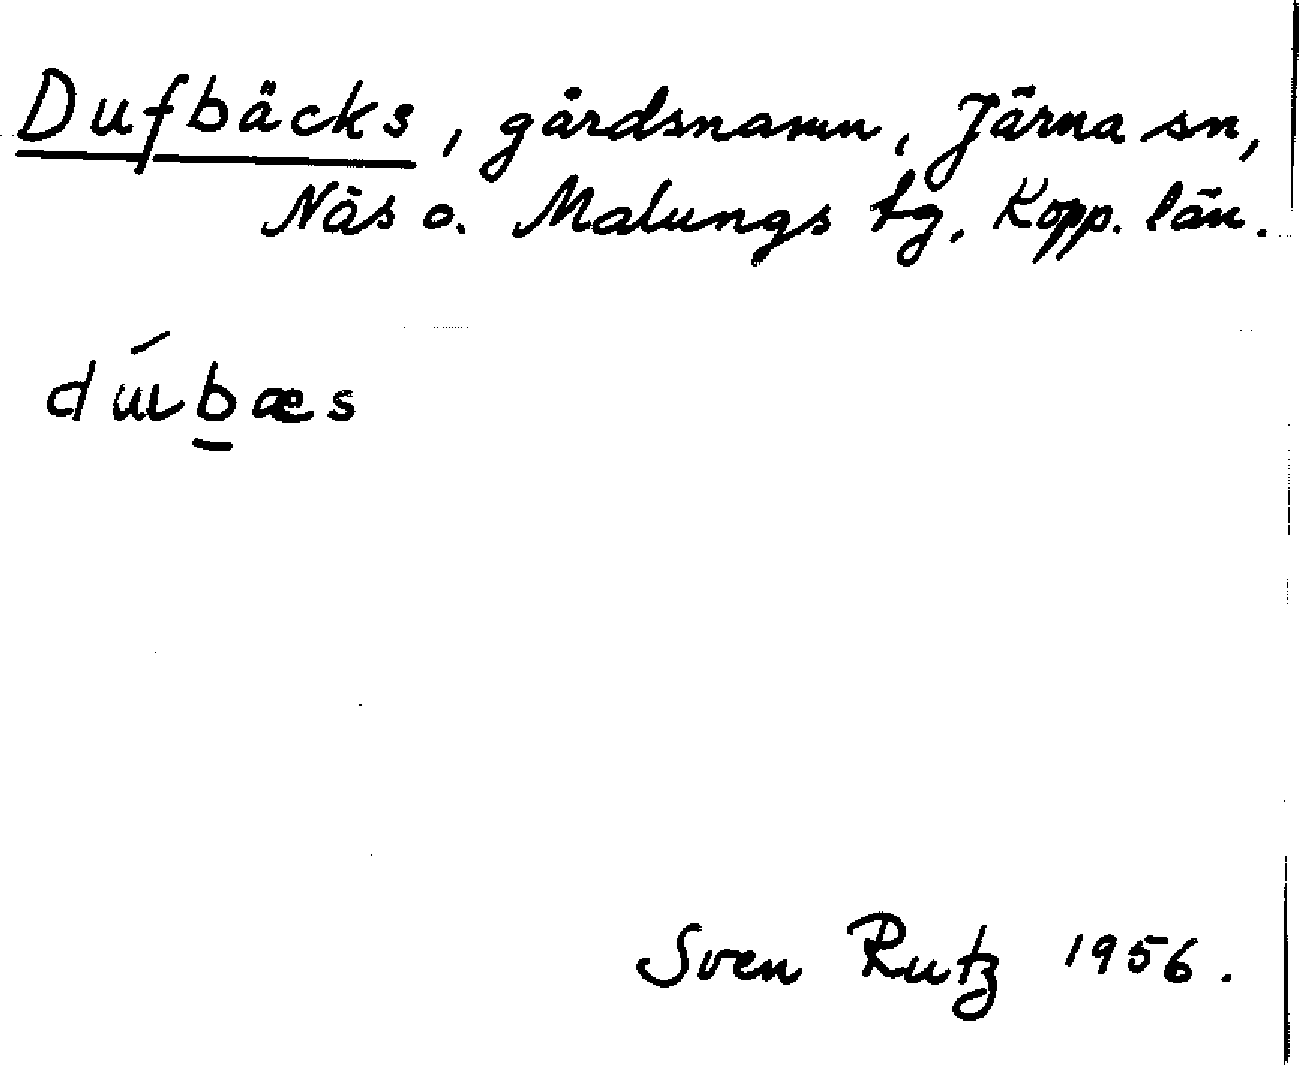 Dufbäcks, gårdsnamn, Järna sn,
Näs o. Malungs tg, Kopp. län.
dúɩbæs
Sven Rutz 1956.